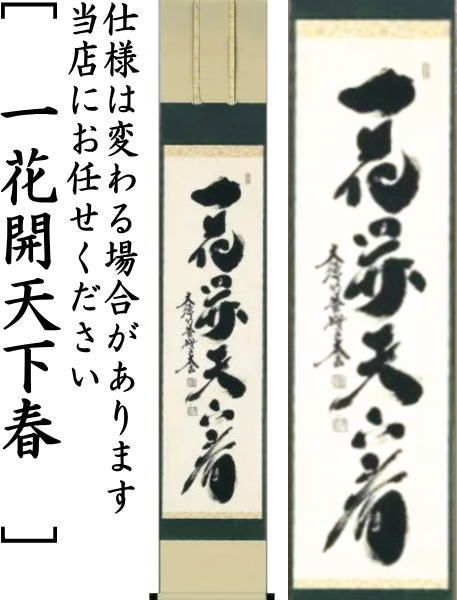 仕様は変わる場合があります
当店にお任せください
[一花開天下春]
一花開天下春
一花開天下春